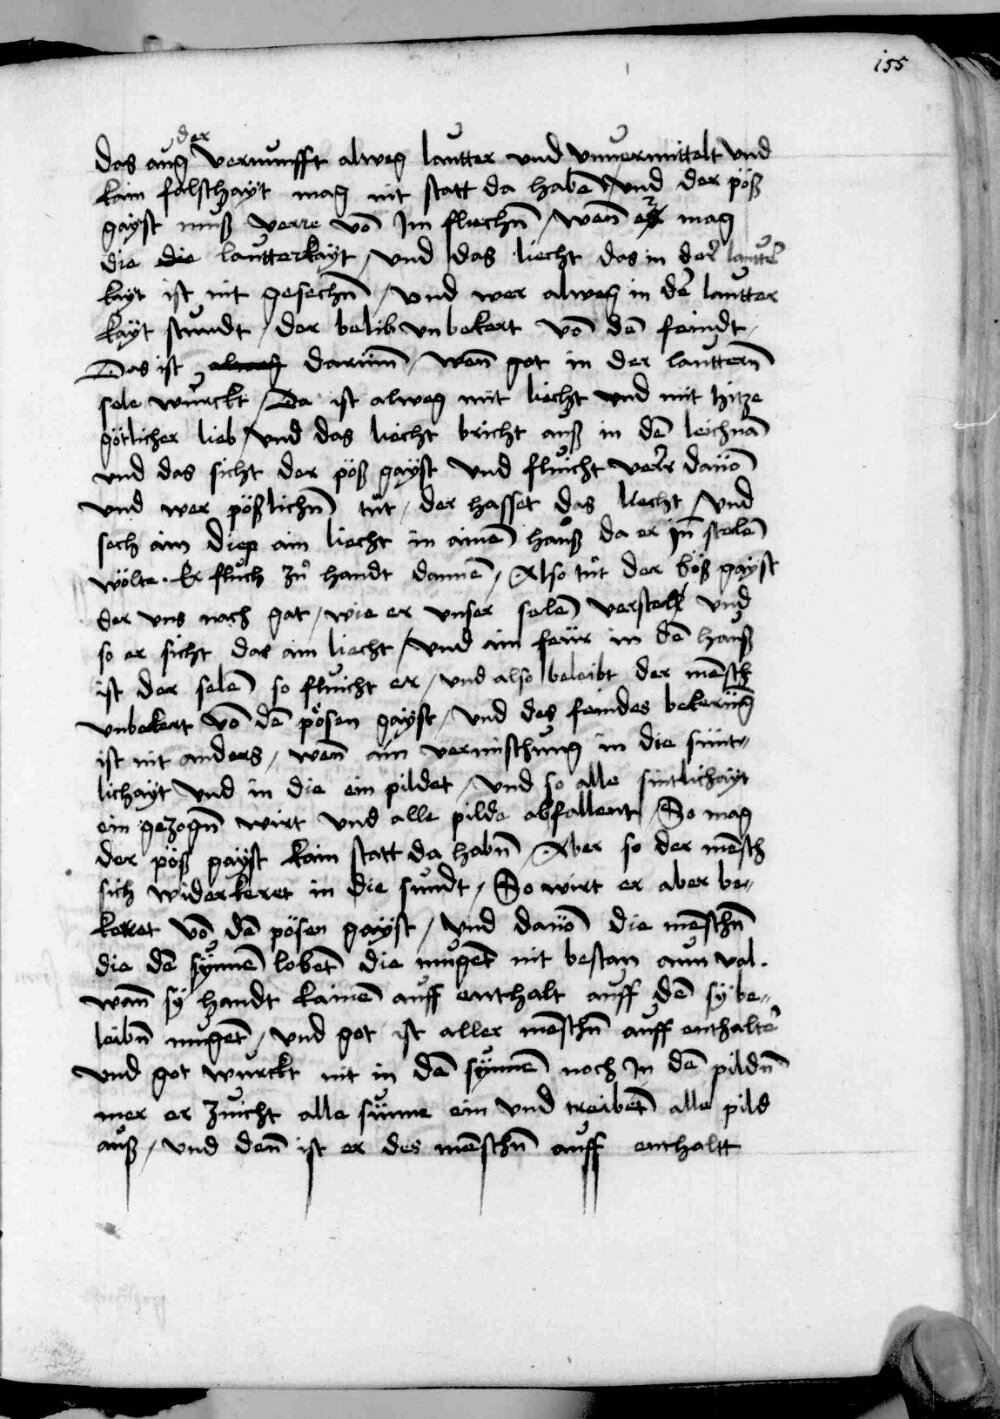 155
der
das aug vernunfft alweg lautter und unvermittelt und
kain falschayt mag nit statt da habē / und der pöß
gayst muß verre vō Im fliechn̄ / wen̄ er mag
die die lautterkayt / und das liecht das in der lautter
kayt ist nit gesechn̄ / und wer alweg in der lautter
kayt stundt / der belib unbekert vō dē feindt /
Das ist alweg darūm / wen̄ got in der lauttern̄
sele wurckt / Da ist alweg mit liecht und mit hitze
götlicher lieb / und das liecht bricht auß in dē leichnā
und das sicht der pöß gayst und fluicht verr dauō
und wer pößlichn̄ tut / der hasset das liecht / und
sech ain diep ain liecht in ainē hauß da er in̄ stelē
wölte · Er fluch zu handt dannen / Also tut der böß gayst
der uns nach gat / wie er unser selē verstel und
so er sicht das ain liecht / und ain feür in dē hauß
ist der selē so fluicht er / und also beleibt der mēsch
unbekert vō dē pösen gayst / und des feindes bekerūg
ist nit anders / wen̄ ain vermischung in die sünt〃
lichayt und in die ein pildet / und so alle sintlichayt
ein gezogn̄ wirt und alle pilde abfallent / So mag
der pöß gayst kain statt da habn̄ / Aber so der mēsch
sich widerkeret in die sundt / So wirt er aber be〃
keret vō dē pösen gayst / und dauō die mēschn̄
die dē synnē lebēt die mugēt nit bestan aun val .
wan̄ sy handt kainē auff enthalt auff dē sy be〃
leibn̄ mugēt / und got ist aller mēschn̄ auff enthalter
und got wurckt nit in dē synnē noch In dē pildn̄
mer er zuicht alle sünne ein und treibēt alle pild
auß / und den̄ ist er des mēschn̄ auff enthaltt